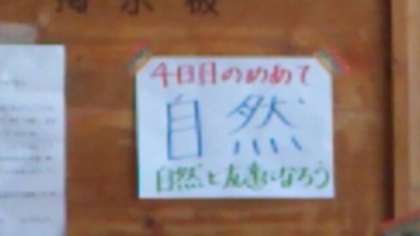 掲示板
4日目のめあて
自然
自然と友達になろう